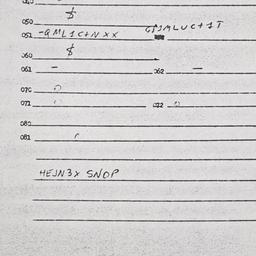 $
050
051 -QML1C+NXX
$
060
061 - 062 -
070
071 072
080
081
HEJN3X SNOP